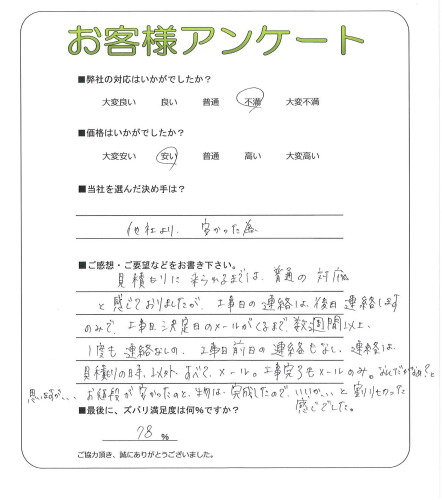 お客様アンケート
■弊社の対応はいかがでしたか？
大変良い 良い 普通 不満 大変不満
■価格はいかがでしたか？
大変安い 安い 普通 高い 大変高い
■当社を選んだ決め手は？
他社より、安かった為
■ご感想・ご要望などをお書き下さい。
見積もりに来られるまでは、普通の対応
と感じておりましたが、工事日の連絡は、後日連絡します
のみで、工事日決定日のメールがくるまで、数週間以上、
1度も連絡なしの、工事日前日の連絡もなし、連絡は、
見積りの日時以外、すべて、メール。工事完了もメールのみ。なんだかなぁ？と
思いますが、、、お値段が安かったのと、物は、完成したので、いいか、、と割りきった
感じでした。
■最後に、ズバリ満足度は何%ですか？
78 %
ご協力頂き、誠にありがとうございました。